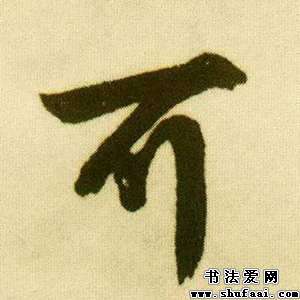 可
书法爱网
www.shufaai.com